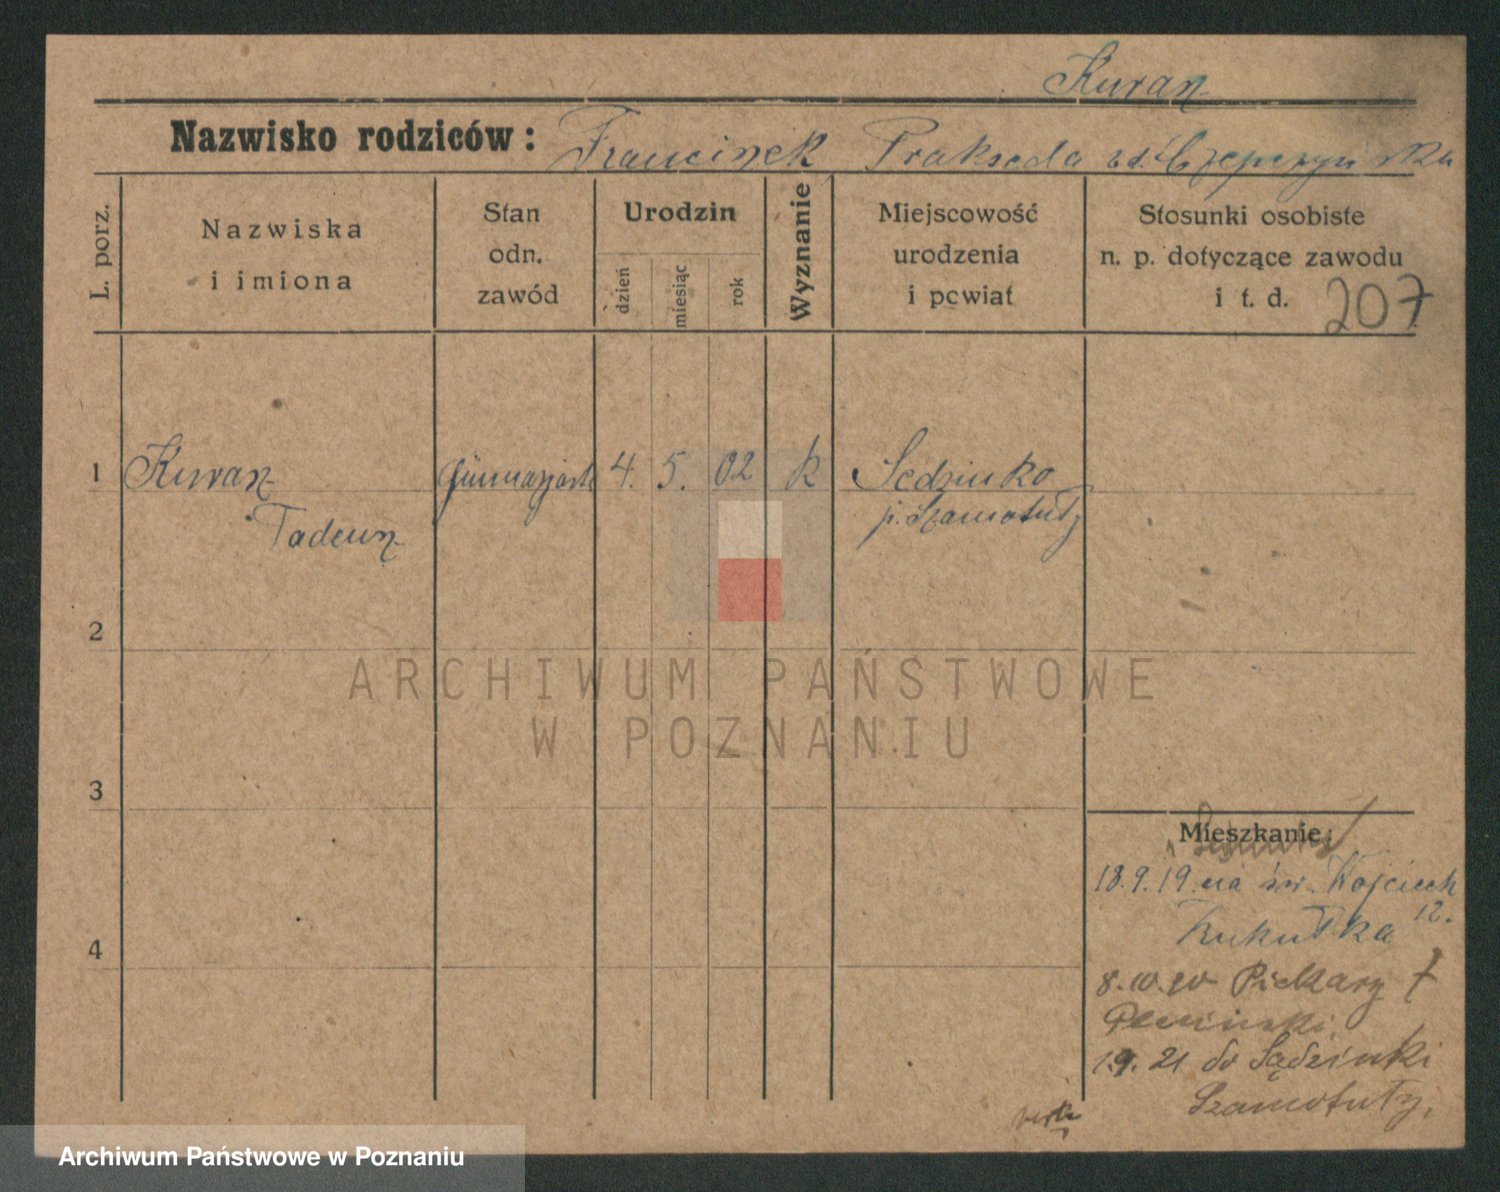 Kuran
Nazwisko rodziców: Franciszek Prakseda
L. porz.
Nazwiska
i imiona
Stan
odn.
zawód
Urodzin
dzień
miesiąc
rok
Wyznanie
Miejscowość
urodzenia
i powiat
Stosunki osobiste
n. p. dotyczące zawodu
i t. d. 207
1 Kuran 4. 5. 02 k Sedzinko
Tadeusz p. Szamotuły
2
ARCHIWUM PAŃSTWOWE
W POZNANIU
3
Mieszkanie:
18.9.19 na św. Wojciech
12.
Kukułka
4
8.10.20 Piekary 7
1.9.21 do Sądzinki
Szamotuły.
Archiwum Państwowe w Poznaniu